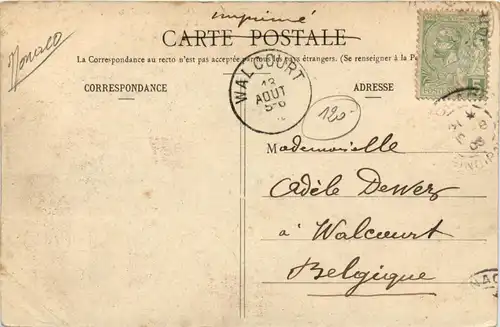 imprimé
CARTE POSTALE
Monaco
La Correspondance au recto n'est pas acceptée par tous les pays étrangers. (Se renseigner à la P
CORRESPONDANCE
ADRESSE
WALCOURT
13
AOUT
5-6
120
Mademoiselle
Adèle Dewez
à Walcourt
Belgique